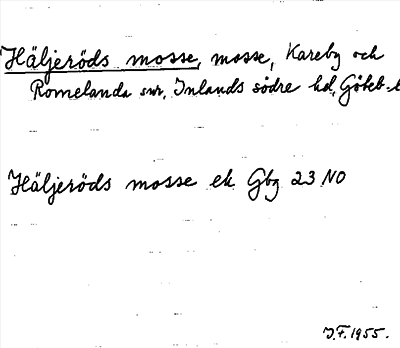 Häljeröds mosse, mosse, Kareby och
Romelanda snr, Inlands södre hd, Göteb.
Häljeröds mosse ek Gbg 23 NO
J.F. 1955.